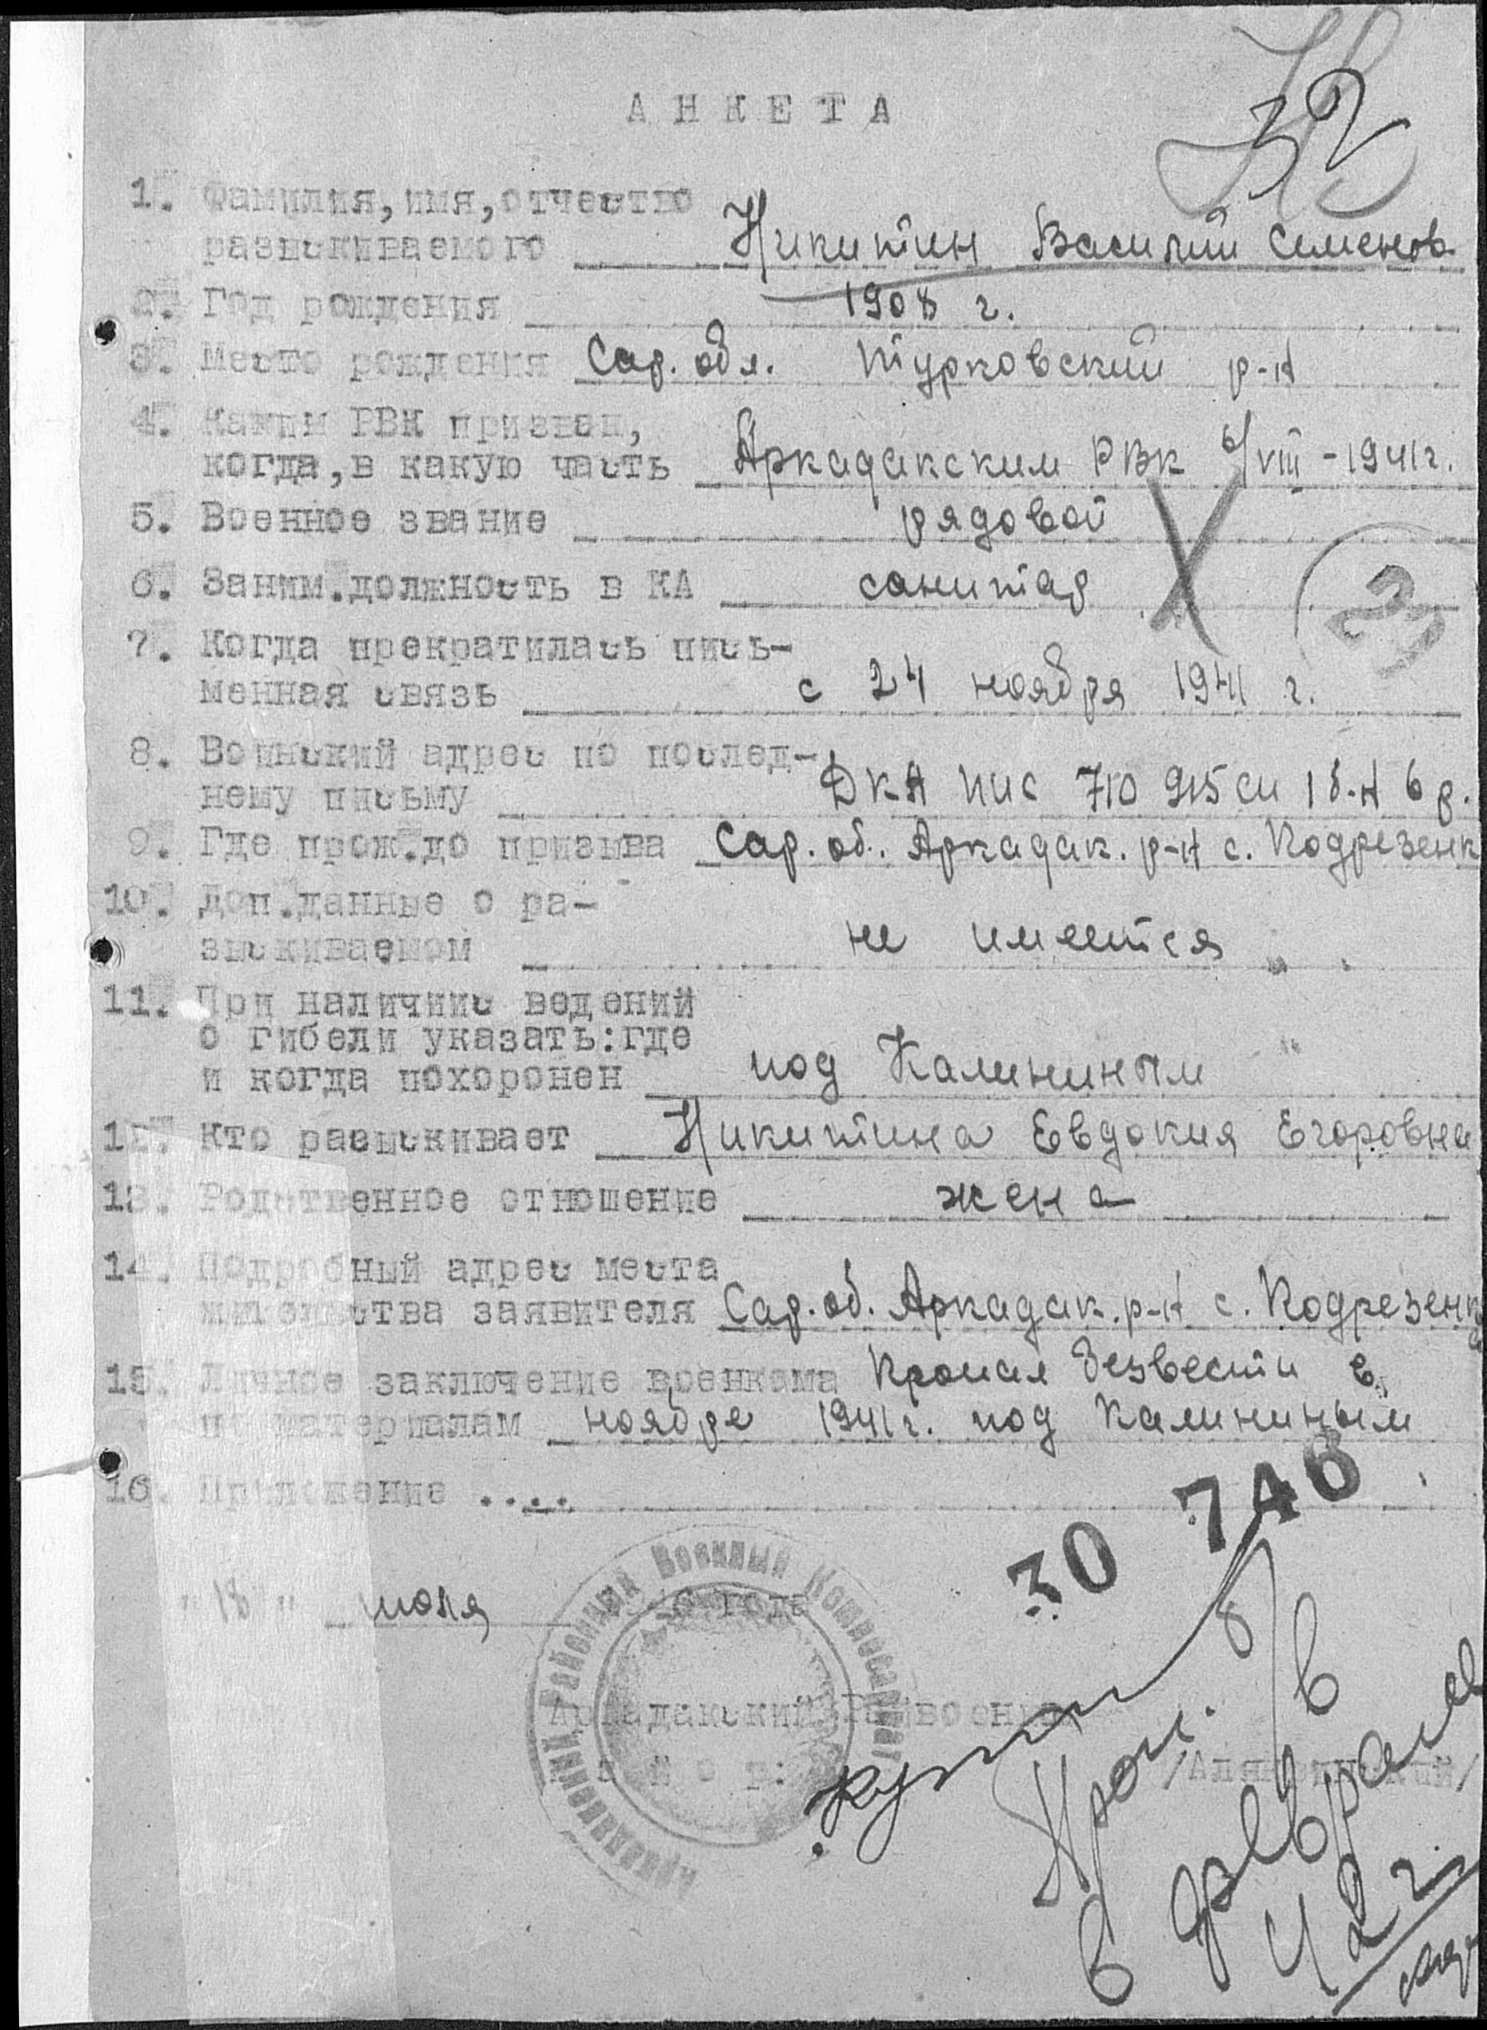 32
АНКЕТА
1. Фамилия, имя, отчество
разыскиваемого Никитин Василий Семенов
2. Год рождения 1908 г.
3. Место рождения Сар. обл. Турковский р-н
4. Каким РВК призван,
когда, в какую часть Аркадакским РВК 6/VIII-1941г.
5. Военное звание рядовой
6. Заним.должность в КА санитар
23
7. Когда прекратилась пись-
менная связь с 24 ноября 1941 г.
8. Воинский адрес по послед-
нему письму ДКА ППС 710 915 сп 1 б-н 6 р.
9. Где прож.до призыва Сар. об. Аркадак. р-н с.
10. Доп.данные о ра-
зыскиваемом не имеется
11. При наличиис ведений
о гибели указать:где
и когда похоронен под Калининым
12. Кто разыскивает Никитина Евдокия Егоровна
13. Родственное отношение жена
14. Подробный адрес места
жительства заявителя Сар. об. Аркадак. р-н с.
15. Личное заключение военкома Пропал безвести в
по материалам ноябре 1941г. под Калининым
16. Приложение ....
30 746
"18" июля 6 года
Аркадакский Районный Военный Комиссариат
Аркадакский Райвоенком
Проп. б/в
в феврале
42 г.